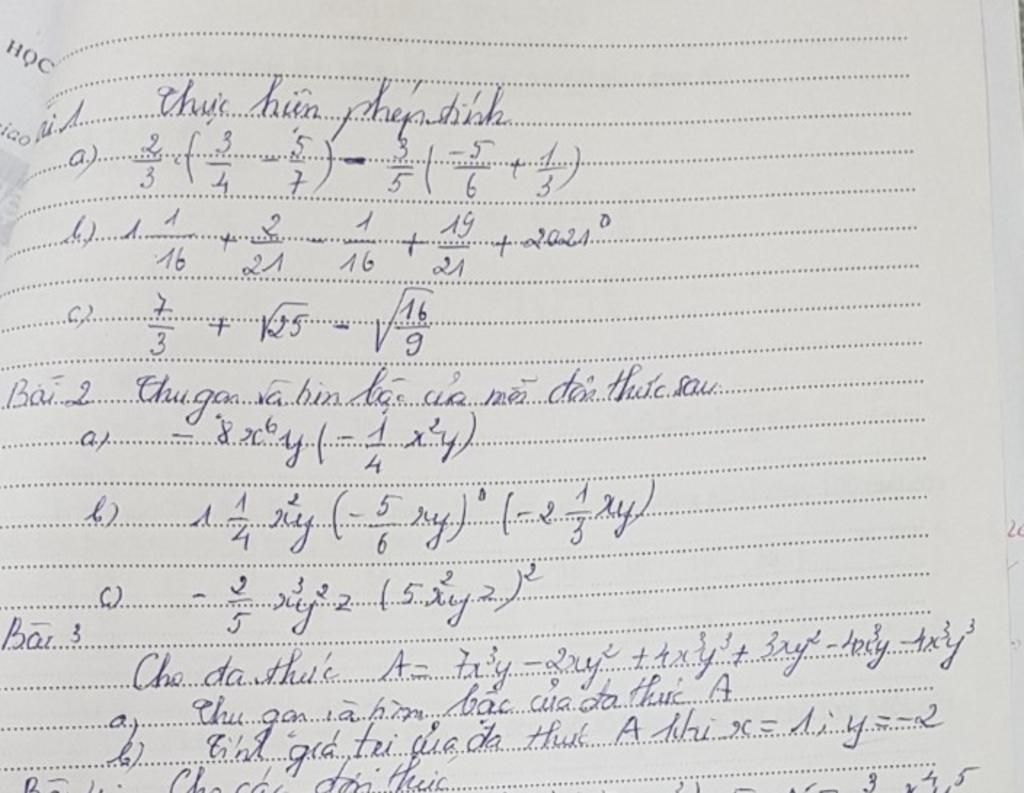 HỌC
giao
ài 1 Thực hiện phép tính
a) 2/3 . (3/4 - 5/7) - 3/5 (-5/6 + 1/3)
b) 1 1/16 + 2/21 - 1/16 + 19/21 + 2021⁰
c) 7/3 + √25 - √(16/9)
Bài 2 Thu gọn và tìm bậc của mỗi đơn thức sau
a) - 8x⁶y (- 1/4 x²y)
b) 1 1/4 x²y (- 5/6 xy)⁰ (-2 1/3 xy)
c) - 2/5 x³y²z (5x²yz)²
Bài 3
Cho đa thức A = 7x³y - 2xy² + 4x³y³ + 3xy² - 4x³y - 4x³y³
a) Thu gọn và tìm bậc của đa thức A
b) Tính giá trị của đa thức A khi x = 1; y = -2
Cho các đơn thức